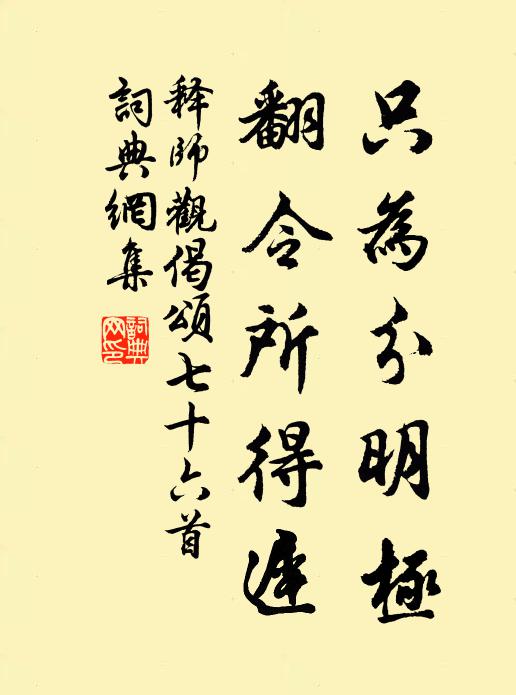 只為分明極
翻令所得遲
释師觀偈頌七十六首
詞典網集
詞典网印